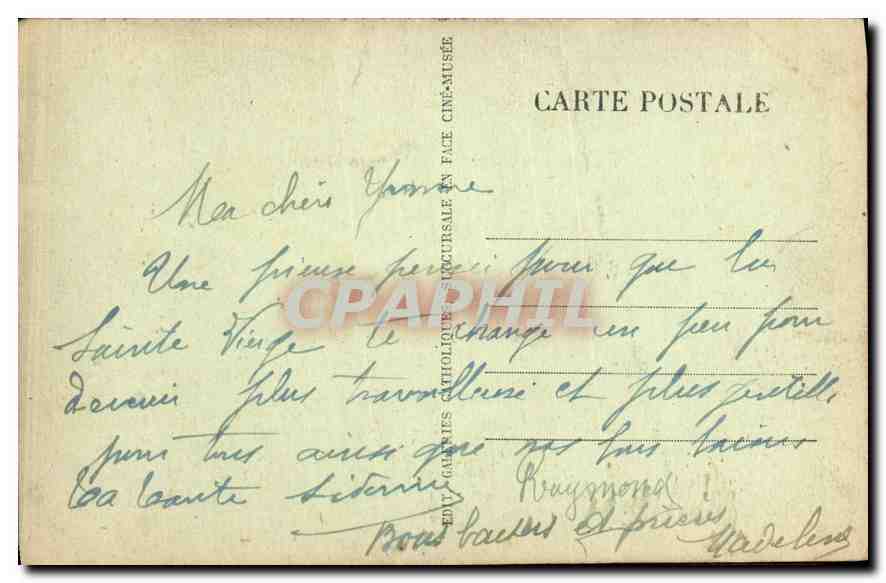 CARTE POSTALE
EDIT. GALERIES CATHOLIQUES SUCCURSALE EN FACE CINÉ-MUSÉE
Ma chère Yvonne
Une pieuse pensée pour que la
Sainte Vierge te change un peu pour
devenir plus travailleuse et plus gentille
pour tous ainsi que nos bons baisers
Ta tante Sidonie Raymond
Bons baisers et prières Madeleine
CPAPHIL